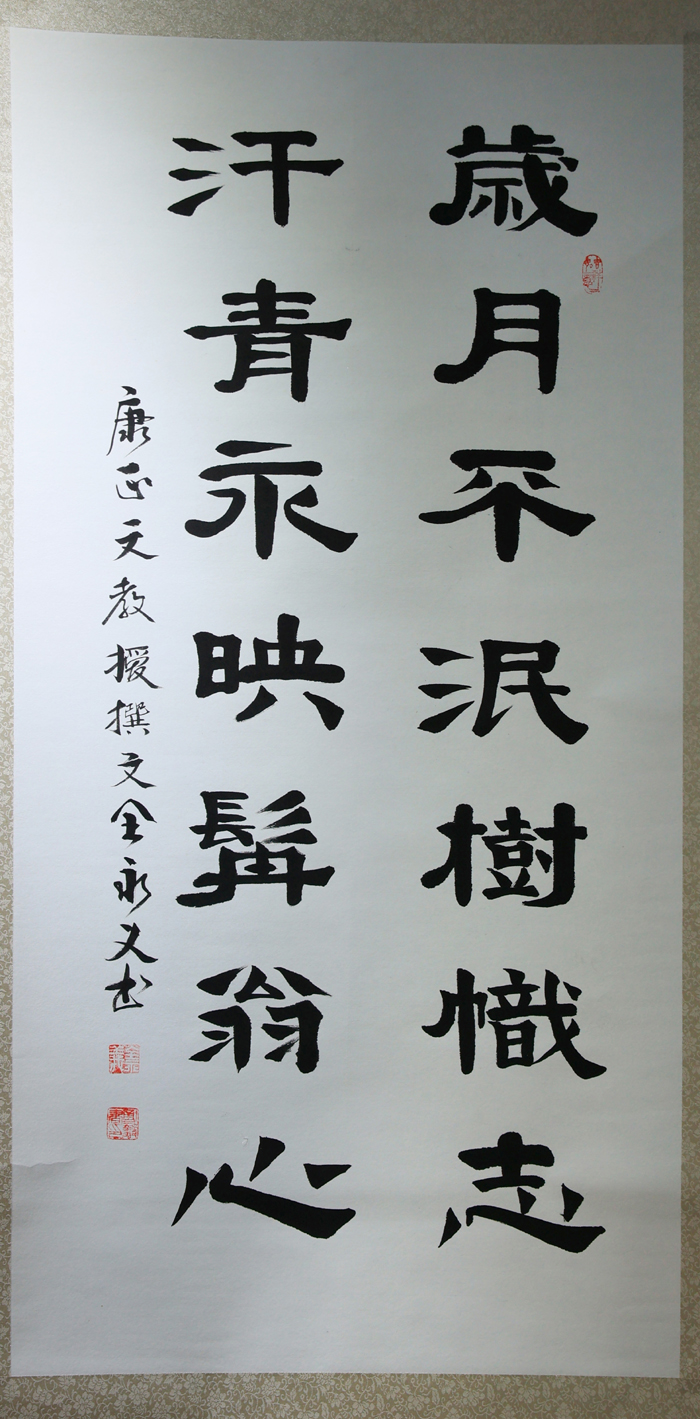 歲月不泯樹幟志
汗青永映髯翁心
康正文教授撰文全永义书